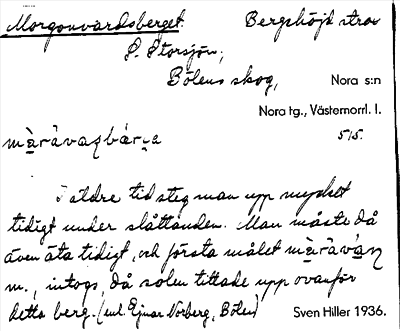 Morgonvardsberget. Bergshöjd strax
S. Storsjön,
Bölens skog, Nora s:n
Nora tg., Västernorrl. l.
515.
I äldre tid steg man upp mycket
tidigt under slåttanden. Man måste då
även äta tidigt, och första målet
m., intogs, då solen tittade upp ovanför
detta berg. (enl. Ejnar Norberg, Bölen) Sven Hiller 1936.